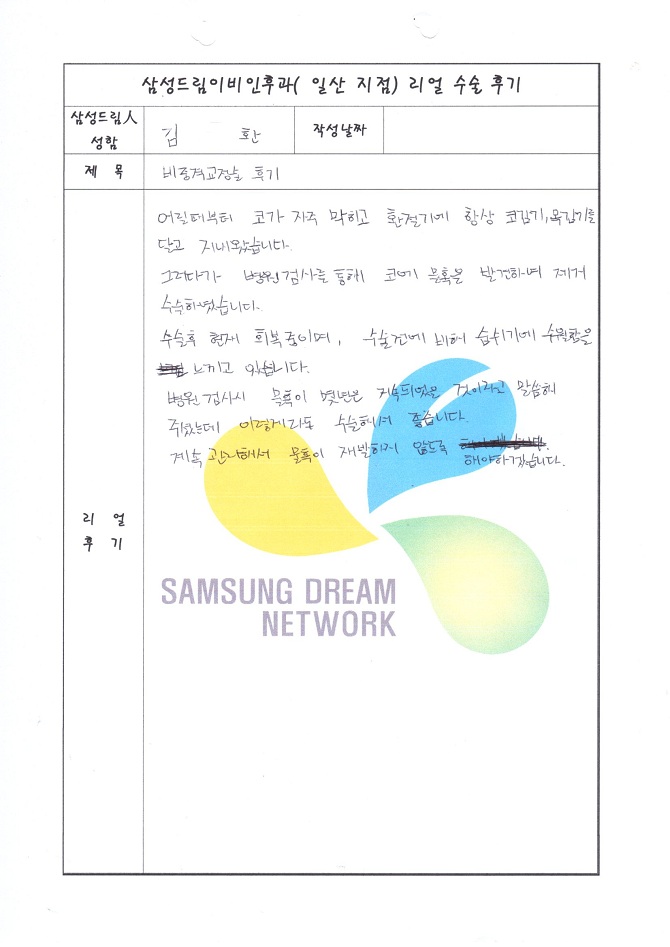 삼성드림이비인후과( 일산 지점) 리얼 수술 후기
삼성드림人
성함
김 환
작성날짜
제 목
비중격교정술 후기
어릴때부터 코가 자주 막히고 환절기에 항상 코감기,목감기를
달고 지내왔습니다.
그러다가 병원검사를 통해 코에 물혹을 발견하여 제거
수술하였습니다.
수술후 현재 회복중이며, 수술전에 비해 숨쉬기에 수월함을
느끼고 있습니다.
병원 검사시 물혹이 몇년은 지속되었을 것이라고 말씀해
주셨는데 이렇게라도 수술해서 좋습니다.
계속 관리해서 물혹이 재발하지 않도록
해야하겠습니다.
리 얼
후 기
SAMSUNG DREAM
NETWORK